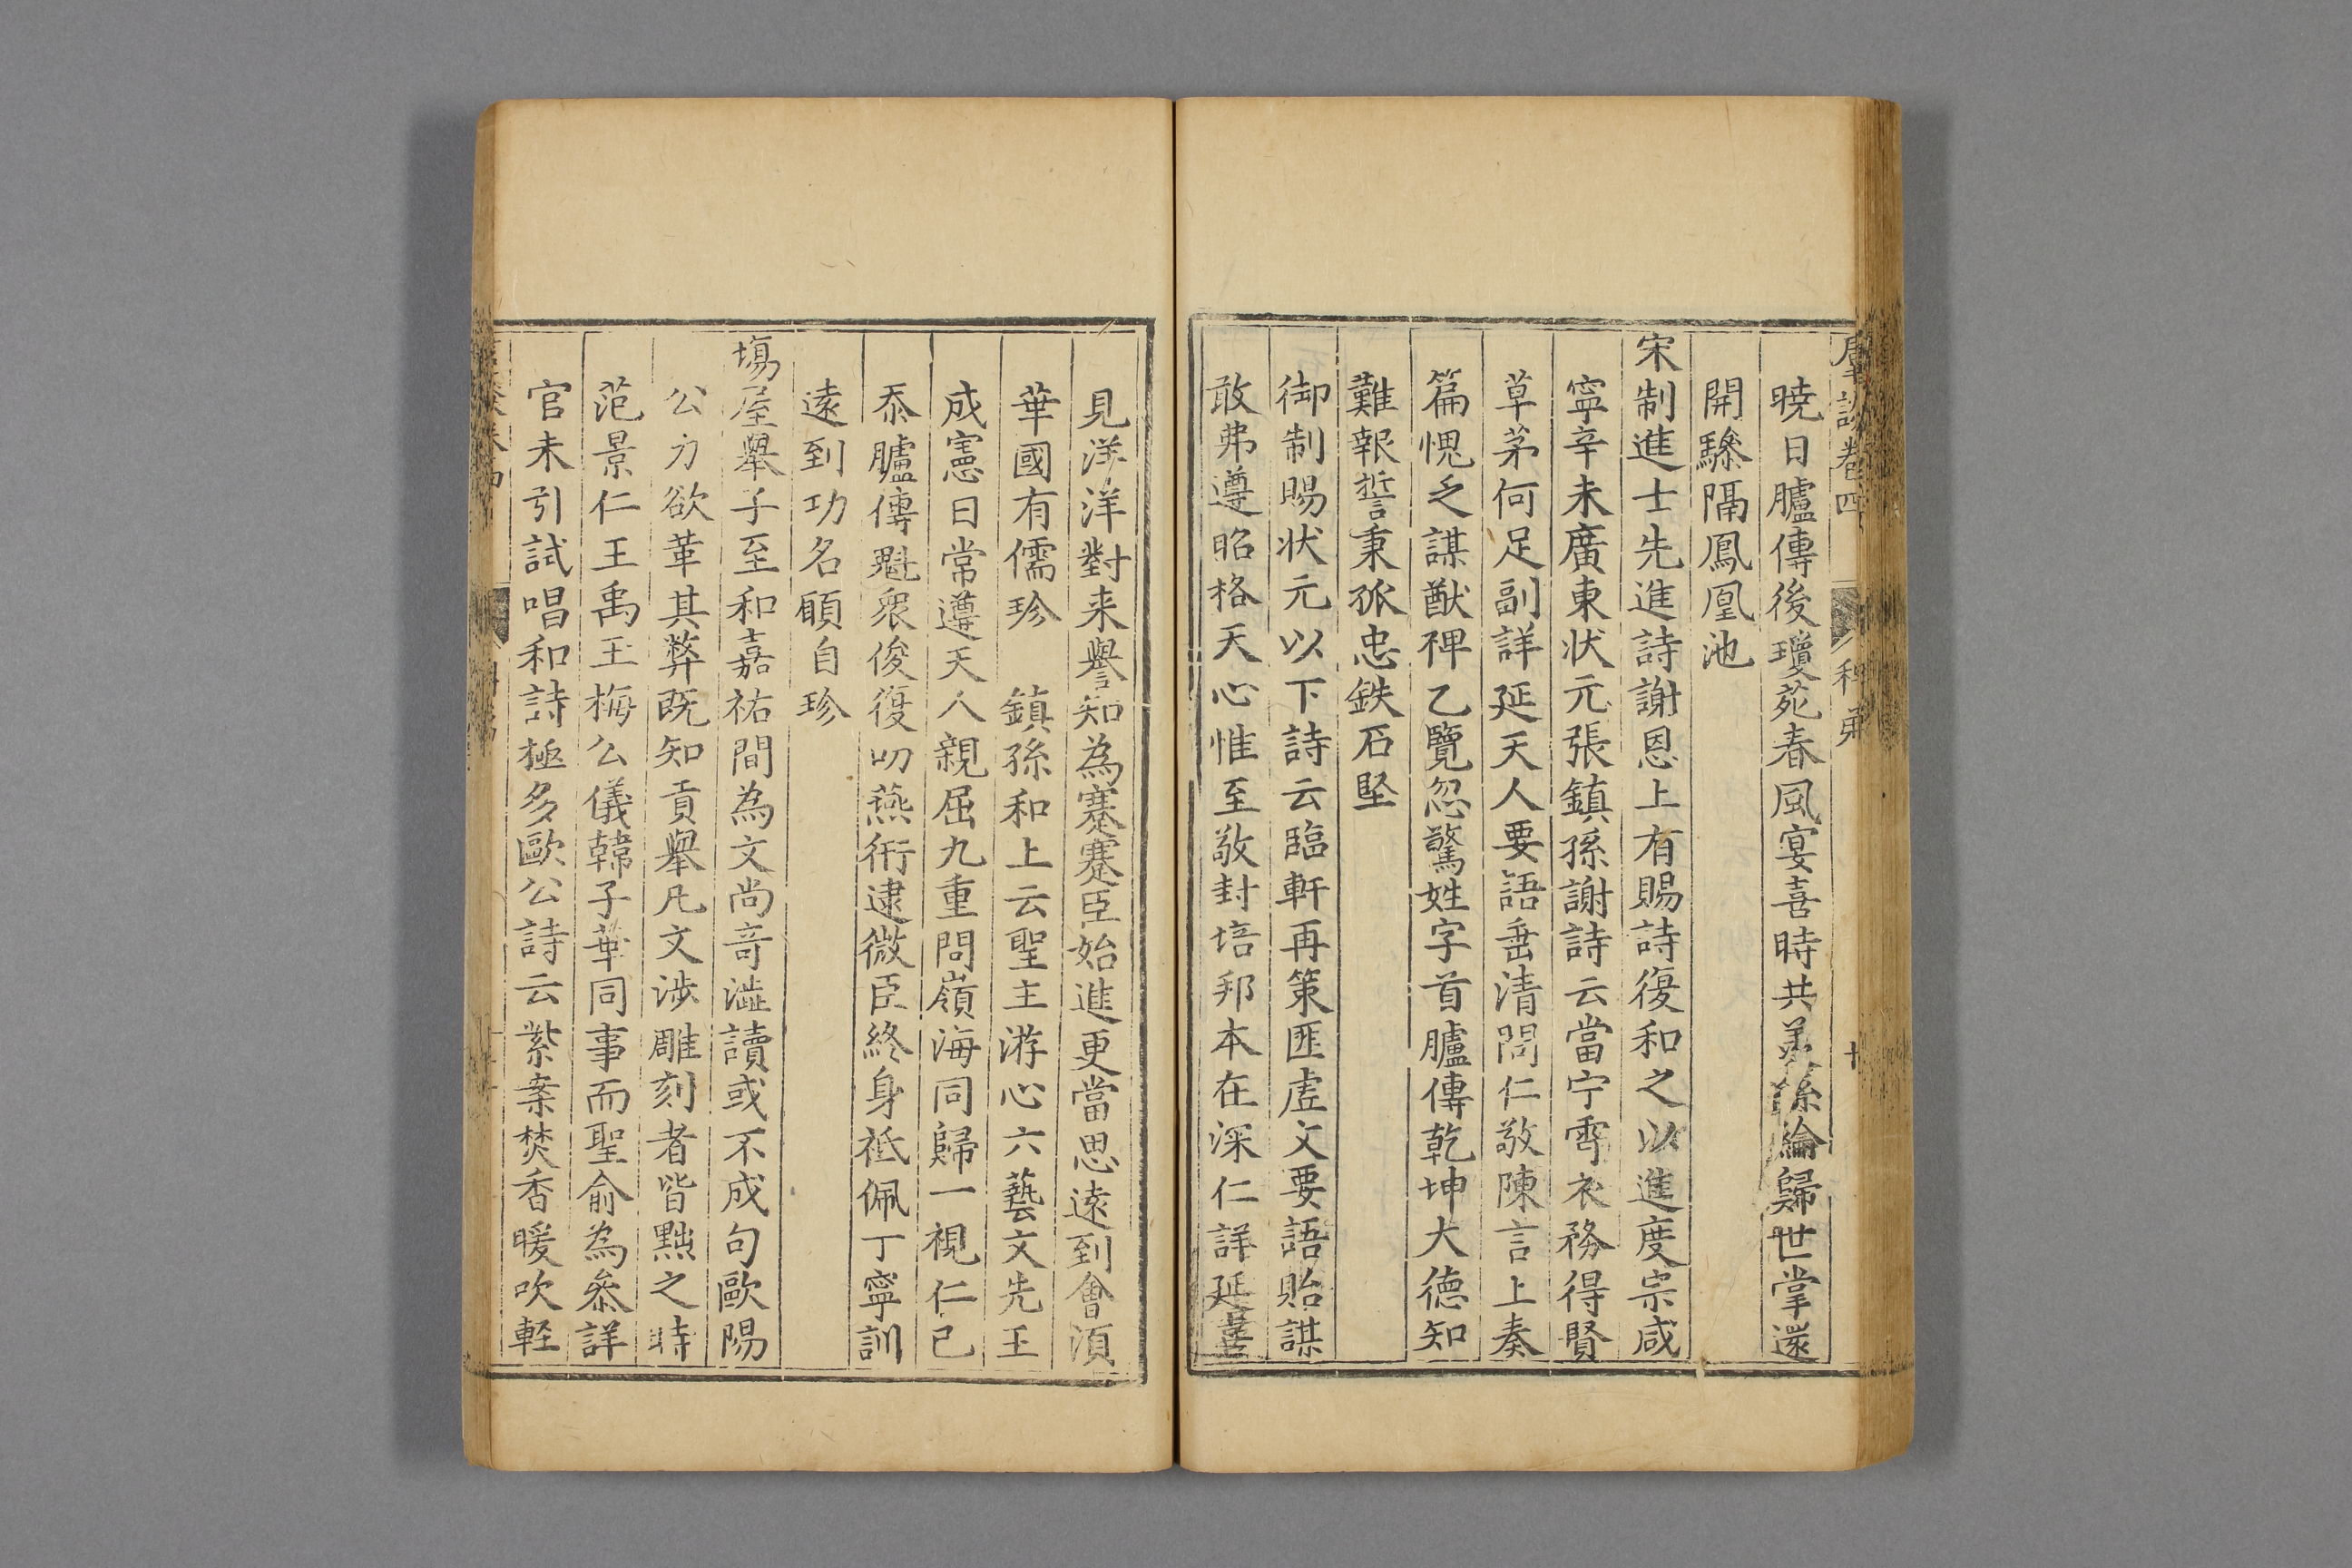 卷四 科第
曉日臚傳後瓊苑春風宴喜時共羨絲綸歸世掌還
開驂隔鳳凰池
宋制進士先進詩謝恩上有賜詩復和之以進度宗咸
寧辛未廣東狀元張鎮孫謝詩云當宁霄衣務得賢
草茅何足副詳延天人要語垂清問仁敬陳言上奏
篇愧乏謀猷禆乙覽忽驚姓字首臚傳乾坤大德知
難報誓秉孤忠鉄石堅
御制賜狀元以下詩云臨軒再策匪虛文要語貽謀
敢弗遵昭格天心惟至敬封培邦本在深仁詳延喜
見洋洋對来譽知為蹇蹇臣始進更當思遠到會湏
華國有儒珍 鎮孫和上云聖主游心六藝文先王
成憲日常遵天人親屈九重問嶺海同歸一視仁已
忝臚傳魁衆俊復叨燕衎逮微臣終身祗佩丁寧訓
遠到功名願自珍
塲屋舉子至和嘉祐間為文尚竒澁讀或不成句歐陽
公力欲革其弊既知貢舉凡文涉雕刻者皆黜之時
范景仁王禹玉梅公儀韓子華同事而聖俞為叅詳
官未引試唱和詩極多歐公詩云紫案焚香暖吹軽